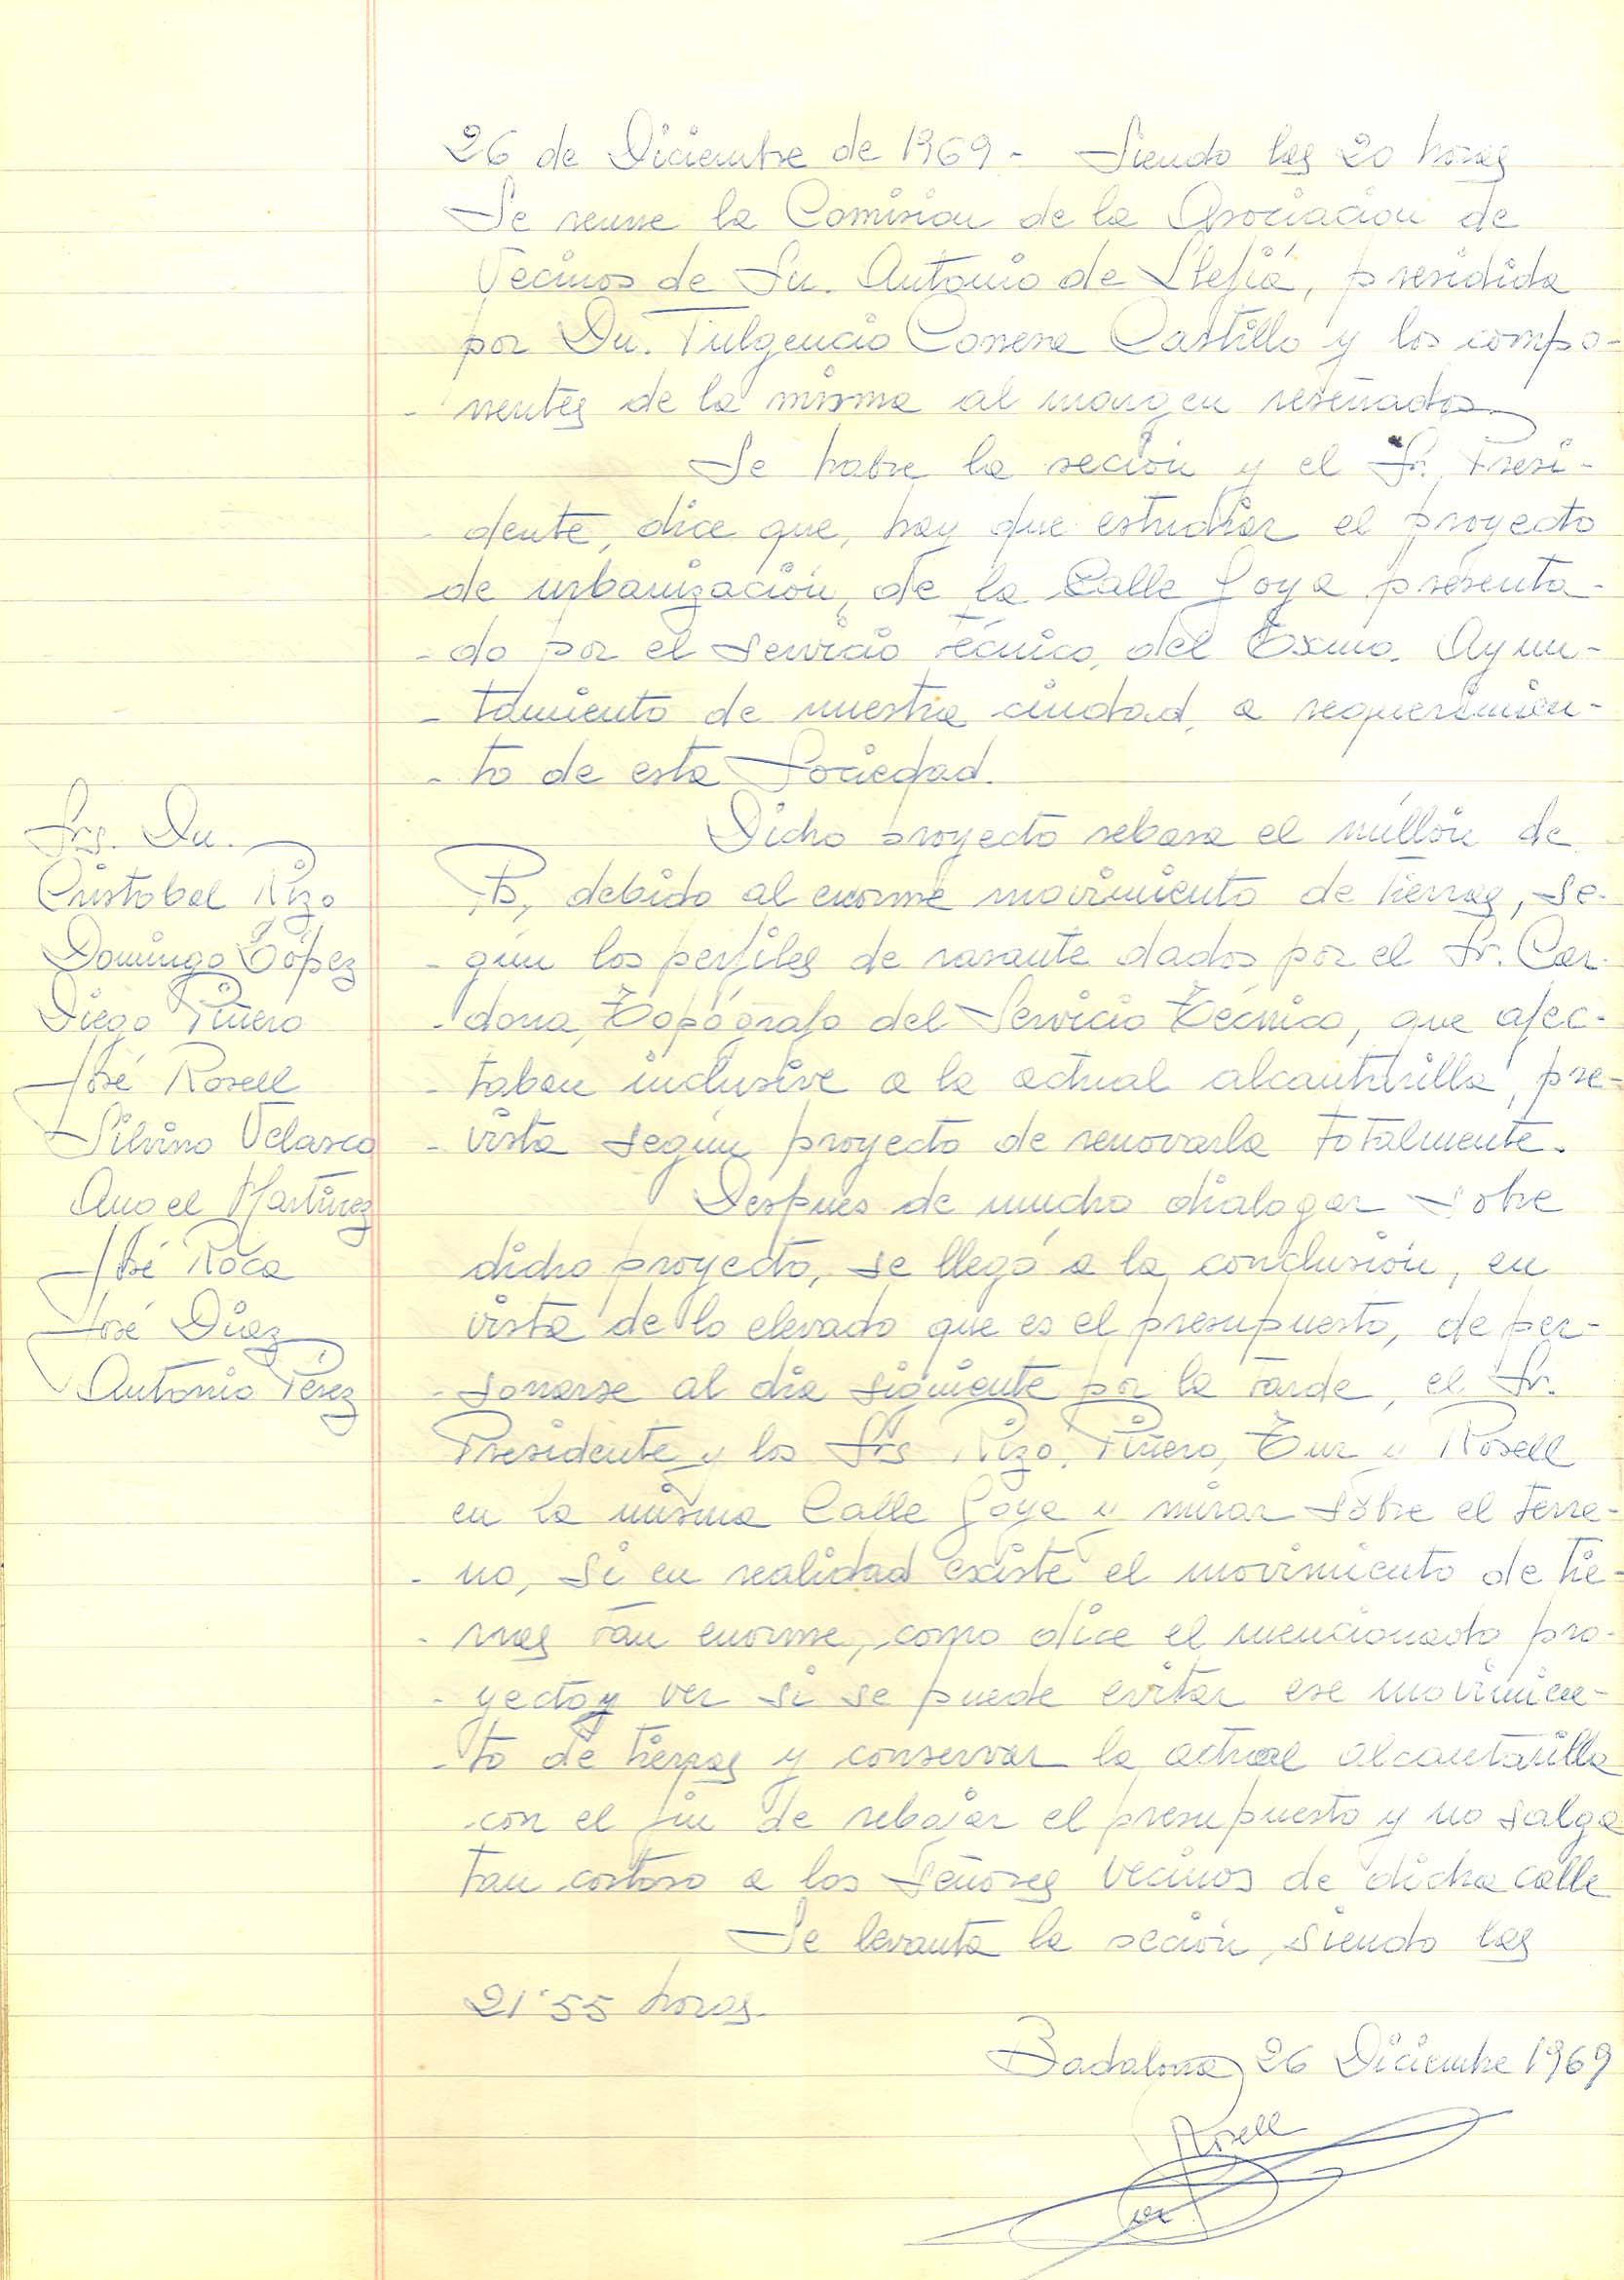 26 de Diciembre de 1969 - Siendo las 20 horas
Se reune la Comision de la Asociacion de
Vecinos de Sn. Antonio de Llefiá, presidida
por Dn. Fulgencio Conesa Castillo y los compo-
- nentes de la misma al margen reseñados.
Se habre la seción y el Sr. Presi-
- dente, dice que, hay que estudiar el proyecto
de urbanización, de la Calle Goya presenta-
- do por el servicio técnico, del Exmo. Ayun-
- tamiento de nuestra ciudad, a requerimien-
- to de esta Sociedad.
Dicho proyecto rebasa el millón de
Pts, debido al enorme movimiento de tierras, se-
- gún los perfiles de rasante dados por el Sr. Car-
- dona, Topógrafo del Servicio Técnico, que afec-
- taban inclusive a la actual alcantarilla, pre-
- vista según proyecto de renovarla totalmente.
Despues de mucho dialogar sobre
dicho proyecto, se llegó a la conclusión, en
vista de lo elevado que es el presupuesto, de per-
- sonarse al dia siguiente por la tarde, el Sr.
Presidente y los Srs Rizo, Piñero, Tur y Rosell
en la misma Calle Goya y mirar sobre el terre-
- no, si en realidad existe el movimiento de tie-
- rras tan enorme, como dice el mencionado pro-
- yecto y ver si se puede evitar ese movimien-
- to de tierras y conservar la actual alcantarilla
con el fin de rebajar el presupuesto y no salga
tan costoso a los Señores vecinos de dicha calle
Se levanta la seción, siendo las
21'55 horas.
Badalona 26 Diciembre 1969
Rosell
Srs. Dn.
Cristobal Rizo
Domingo López
Diego Piñero
José Rosell
Silvino Velasco
Angel Martinez
José Roca
José Diaz
Antonio Pérez